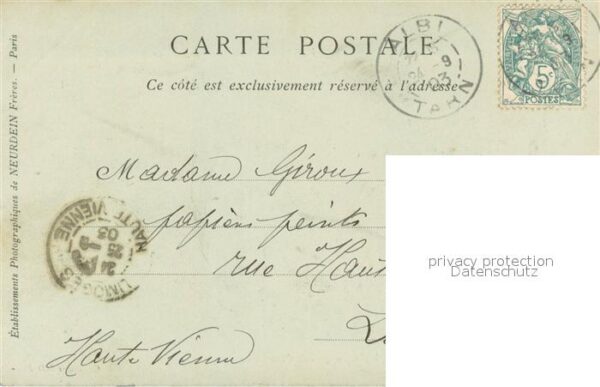 CARTE POSTALE
Ce côté est exclusivement réservé à l'adresse
Établissements Photographiques de NEURDEIN Frères. — Paris
ALBI
TARN
9
03
5c
POSTES
Madame Giroux
papiers peints
rue Haus
Haute Vienne
LIMOGES
HAUTE VIENNE
03
privacy protection
Datenschutz